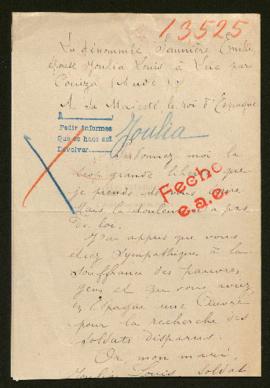 13525
La dénommée Saunière Emilie
épouse Joulia Louis à Luc par
Couiza (Aude)
A Sa Majesté le roi d'Espagne
A
Pedir informes
Que se hace así
Devolver
Joulia
Pardonnez moi la
trop grande liberté que
je prends de vous
mais la douleur n'a pas
de loi.
Fecho
e.a.e.
J'ai appris que vous
étiez sympathique à la
souffrance des pauvres
gens et que vous avez
en Espagne une Œuvre
pour la recherche des
soldats disparus.
Or, mon mari,
Joulia Louis, soldat